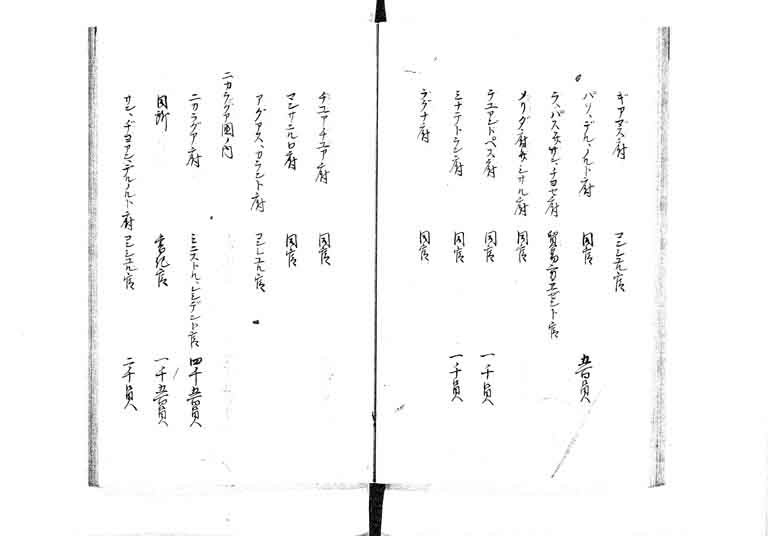 ギアマス府 コンシユル官
パソ、デル、ノルド府 同官 五百員
ラ、パス并サン、チヨセ府 貿易方エゼント官
メリダ府并シサル府 同官
テユアンドペス府 同官 一千員
ミナテトラン府 同官 一千員
ラグナ府 同官
チユアチユア府 同官
マンサニルロ府 同官
アグアス、カラント府 コンシユル官
ニカラグア国ノ内
ニカラグア府 ミニストル、レシデント官 四千五百員
同所 書紀官 一千五百員
サン、ヂヨアン、デル、ノルト府 コンシユル官 二千員